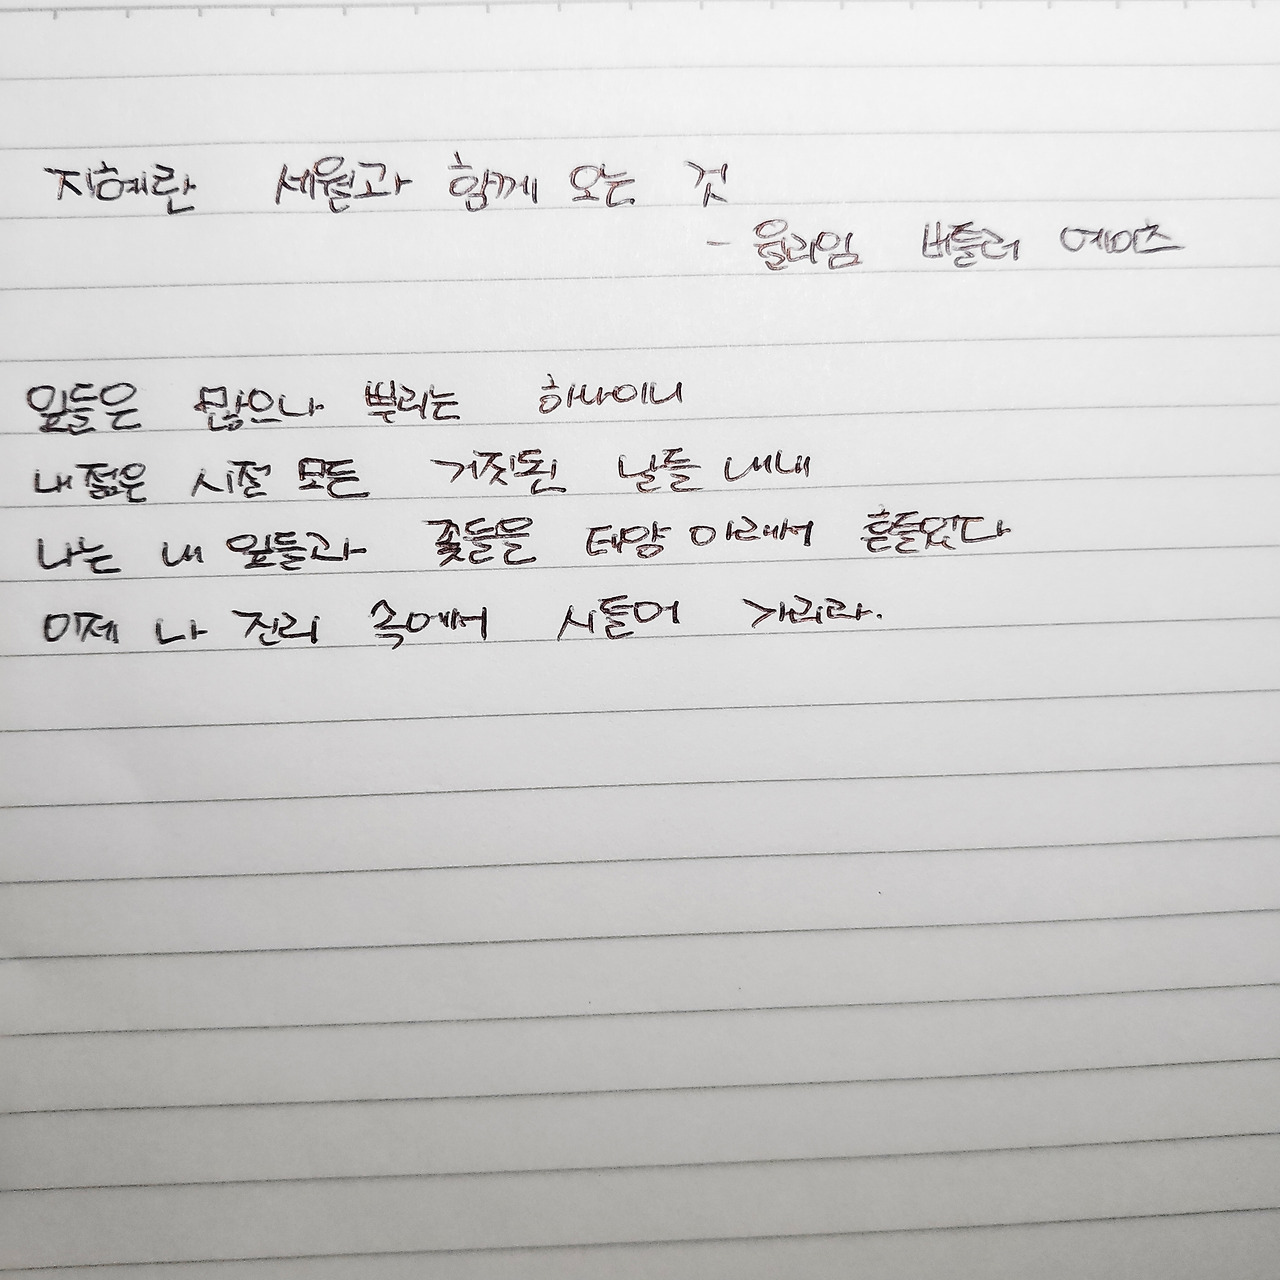 지혜란 세월과 함께 오는 것
- 윌리암 버틀러 예이츠
잎들은 많으나 뿌리는 하나이니
내 젊은 시절 모든 거짓된 날들 내내
나는 내 잎들과 꽃들을 태양 아래서 흔들었다
이제 나 진리 속에서 시들어 가리라.